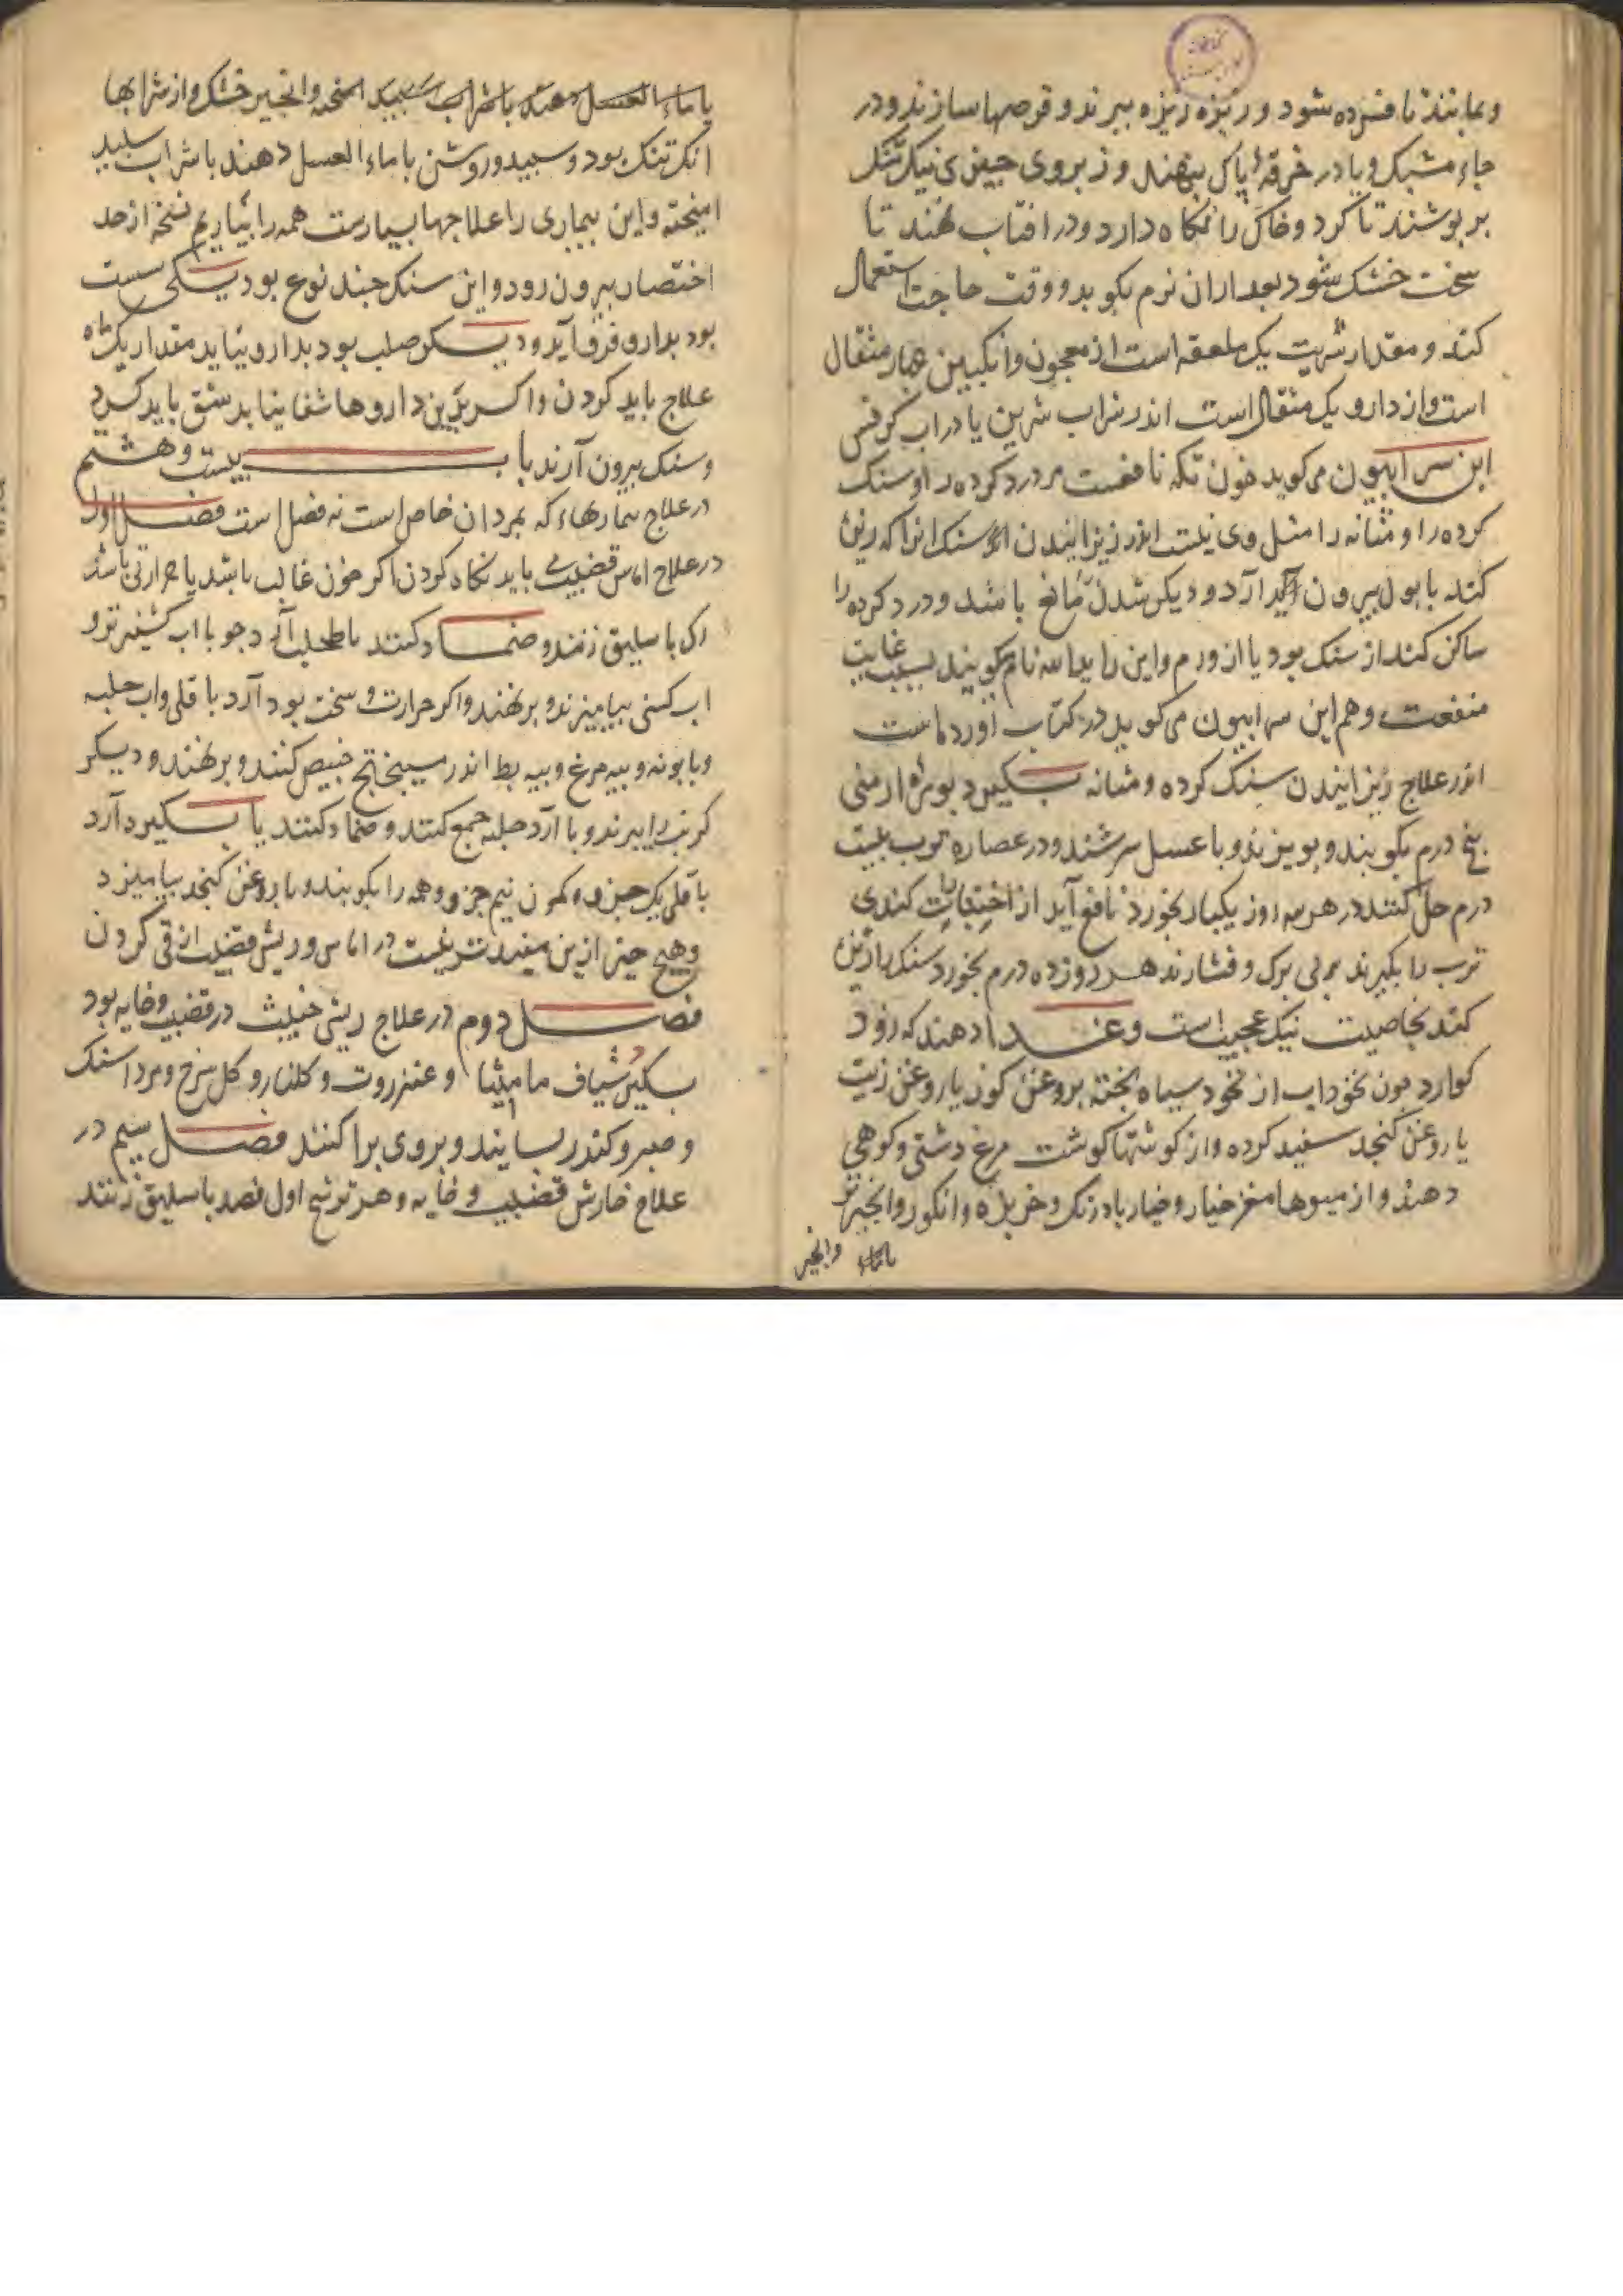 وبمانند تا فسرده شود و ریزه ریزه ببرند و قرصها سازند و در
جاء مشبک و یا در خرقهٔ پاک بنهند و زبروی چیزی نیک تنک
بر پوشند تا کرد و خاک را نکاه دارد و در افتاب نهند تا
سخت خشک شود بعد ازان نرم بکوبد و وقت حاجت استعمال
کند و مقدار شربت یک ملعقه است از معجون و انکبین چهار مثقال
است و از دارو یک مثقال است اندر شراب شرین یا در اب کرفس
ابن سرابیون می کوید خون تکه نافعست مر درد کرده را و سنک
کرده را و مثانه را مثل وی نیست اندر ریزانیدن سنک انرا که ریزه
کند با بول بیرون آرد و دیکر شدن مانع باشد و درد کرده را
ساکن کند از سنک بود یا از ورم و این را یدالله نام کویند بسبب غایت
منفعت و هم ابن سرابیون می کوید در کتاب اورده است
اندر علاج ریزانیدن سنک کرده و مثانه بسکیرد بورهٔ ارمنی
پنج درم بکوبند و ببیزند و با عسل سرشند و در عصاره ترب بیست
درم حل کنند در هر سه روز یکبار بخورد نافع آید از اختیارات کندی
ترب را بکیرند بی برک و فشارند هر روز ده درم بخورد سنک را ریزه
کند بخاصیت نیک عجیب است و غدا دهند که زود
کوارد چون نخوداب از نخود سیاه پخته بروغن کوز یا روغن زیت
یا روغن کنجد سفید کرده و از کوشتها کوشت مرغ دشتی و کوهی
دهند و از میوها مغز خیار و خیار بادرنک و خربزه و انکور و انجیر تر
وانجیر
یا ماء العسل دهند با شراب سپید امیخته و انجیر خشک و از شرابها
انک تنک بود و سپید و روشن با ماء العسل دهند با شراب سپید
امیخته و این بیماری را علاجها بسیارست همه را بیاریم نسخه از حد
اختصار بیرون رود و این سنک چند نوع بود یکی سست
بود بدارو فرو آید و دیکر صلب بود بدارو نیاید مقدار یک ماه
علاج باید کردن و اکر بدین داروها شفا نیابد شق باید کرد
و سنک بیرون آرند باب بیست و هشتم
در علاج بیماریهاء که بمردان خاص است نه فصل است فصل اول
در علاج اماس قضیب باید نکاه کردن اکر خون غالب باشد یا حرارتی باشد
رک باسلیق زنند و ضماد کنند با طحلب آرد جو با اب کشنیز تر و
اب کسنی بیامیزند و بر نهند و اکر حرارت و سخت بود آرد باقلی و اب حلبه
و بابونه و پیه مرغ و پیه بط اندر میبختج خبیص کنند و بر نهند و دیکر
کرنب را ببرند و با آرد حلبه جمع کنند و ضماد کنند یا بسکیرد آرد
باقلی یک جزو و کمون نیم جزو و همه را بکوبند و با روغن کنجد بیامیزد
و هیچ چیز ازین مفید تر نیست در اماس و ریش قضیب از قی کردن
فصل دوم در علاج ریش خبیث در قضیب و خایه بود
بسکیرد شیاف مامیثا و عنزروت و کلنار و کل سرخ و مرداسنک
و صبر و کندر بسایند و بروی پراکنند فصل سیم در
علاج خارش قضیب و خایه و هر ترشح اول فصد باسلیق زنند